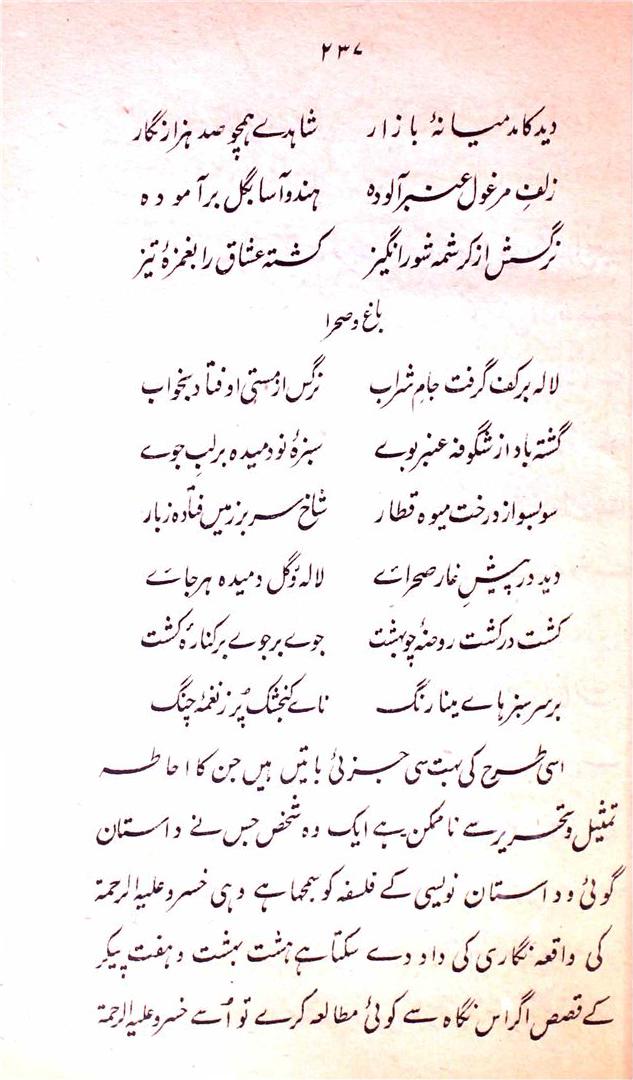 ۲۳۷
دید کامد میانۂ بازار شاہدے ہمچو صد ہزار نگار
زلفِ مرغول عنبر آلودہ ہندو آسا بگل بر آمودہ
نرگسش از کرشمہ شور انگیز کشتہ عشاق را بغمزۂ تیز
باغ و صحرا
لالہ بر کف گرفت جامِ شراب نرگس از مستی اوفتاد بخواب
گشتہ باد از شگوفہ عنبر بوے سبزۂ نو دمیدہ بر لبِ جوے
سوبسو از درخت میوہ قطار شاخ سر بر زمیں فتادہ زبار
دید در پیشِ غار صحرائے لالہ و گل دمیدہ ہر جائے
کشت در کشت روضۂ چو بہشت جوے بر جوے بر کنارۂ کشت
بر سر سبزہاے مینا رنگ ناے کنجشک پُر ز نغمۂ چنگ
اسی طرح کی بہت سی جزئی باتیں ہیں جن کا احاطہ
تمثیل و تحریر سے ناممکن ہے ایک وہ شخص جس نے داستان
گوئی و داستان نویسی کے فلسفہ کو سمجھا ہے وہی خسرو علیہ الرحمۃ
کی واقعہ نگاری کی داد دے سکتا ہے ہشت بہشت و ہفت پیکر
کے قصص اگر اس نگاہ سے کوئی مطالعہ کرے تو اُسے خسرو علیہ الرحمۃ